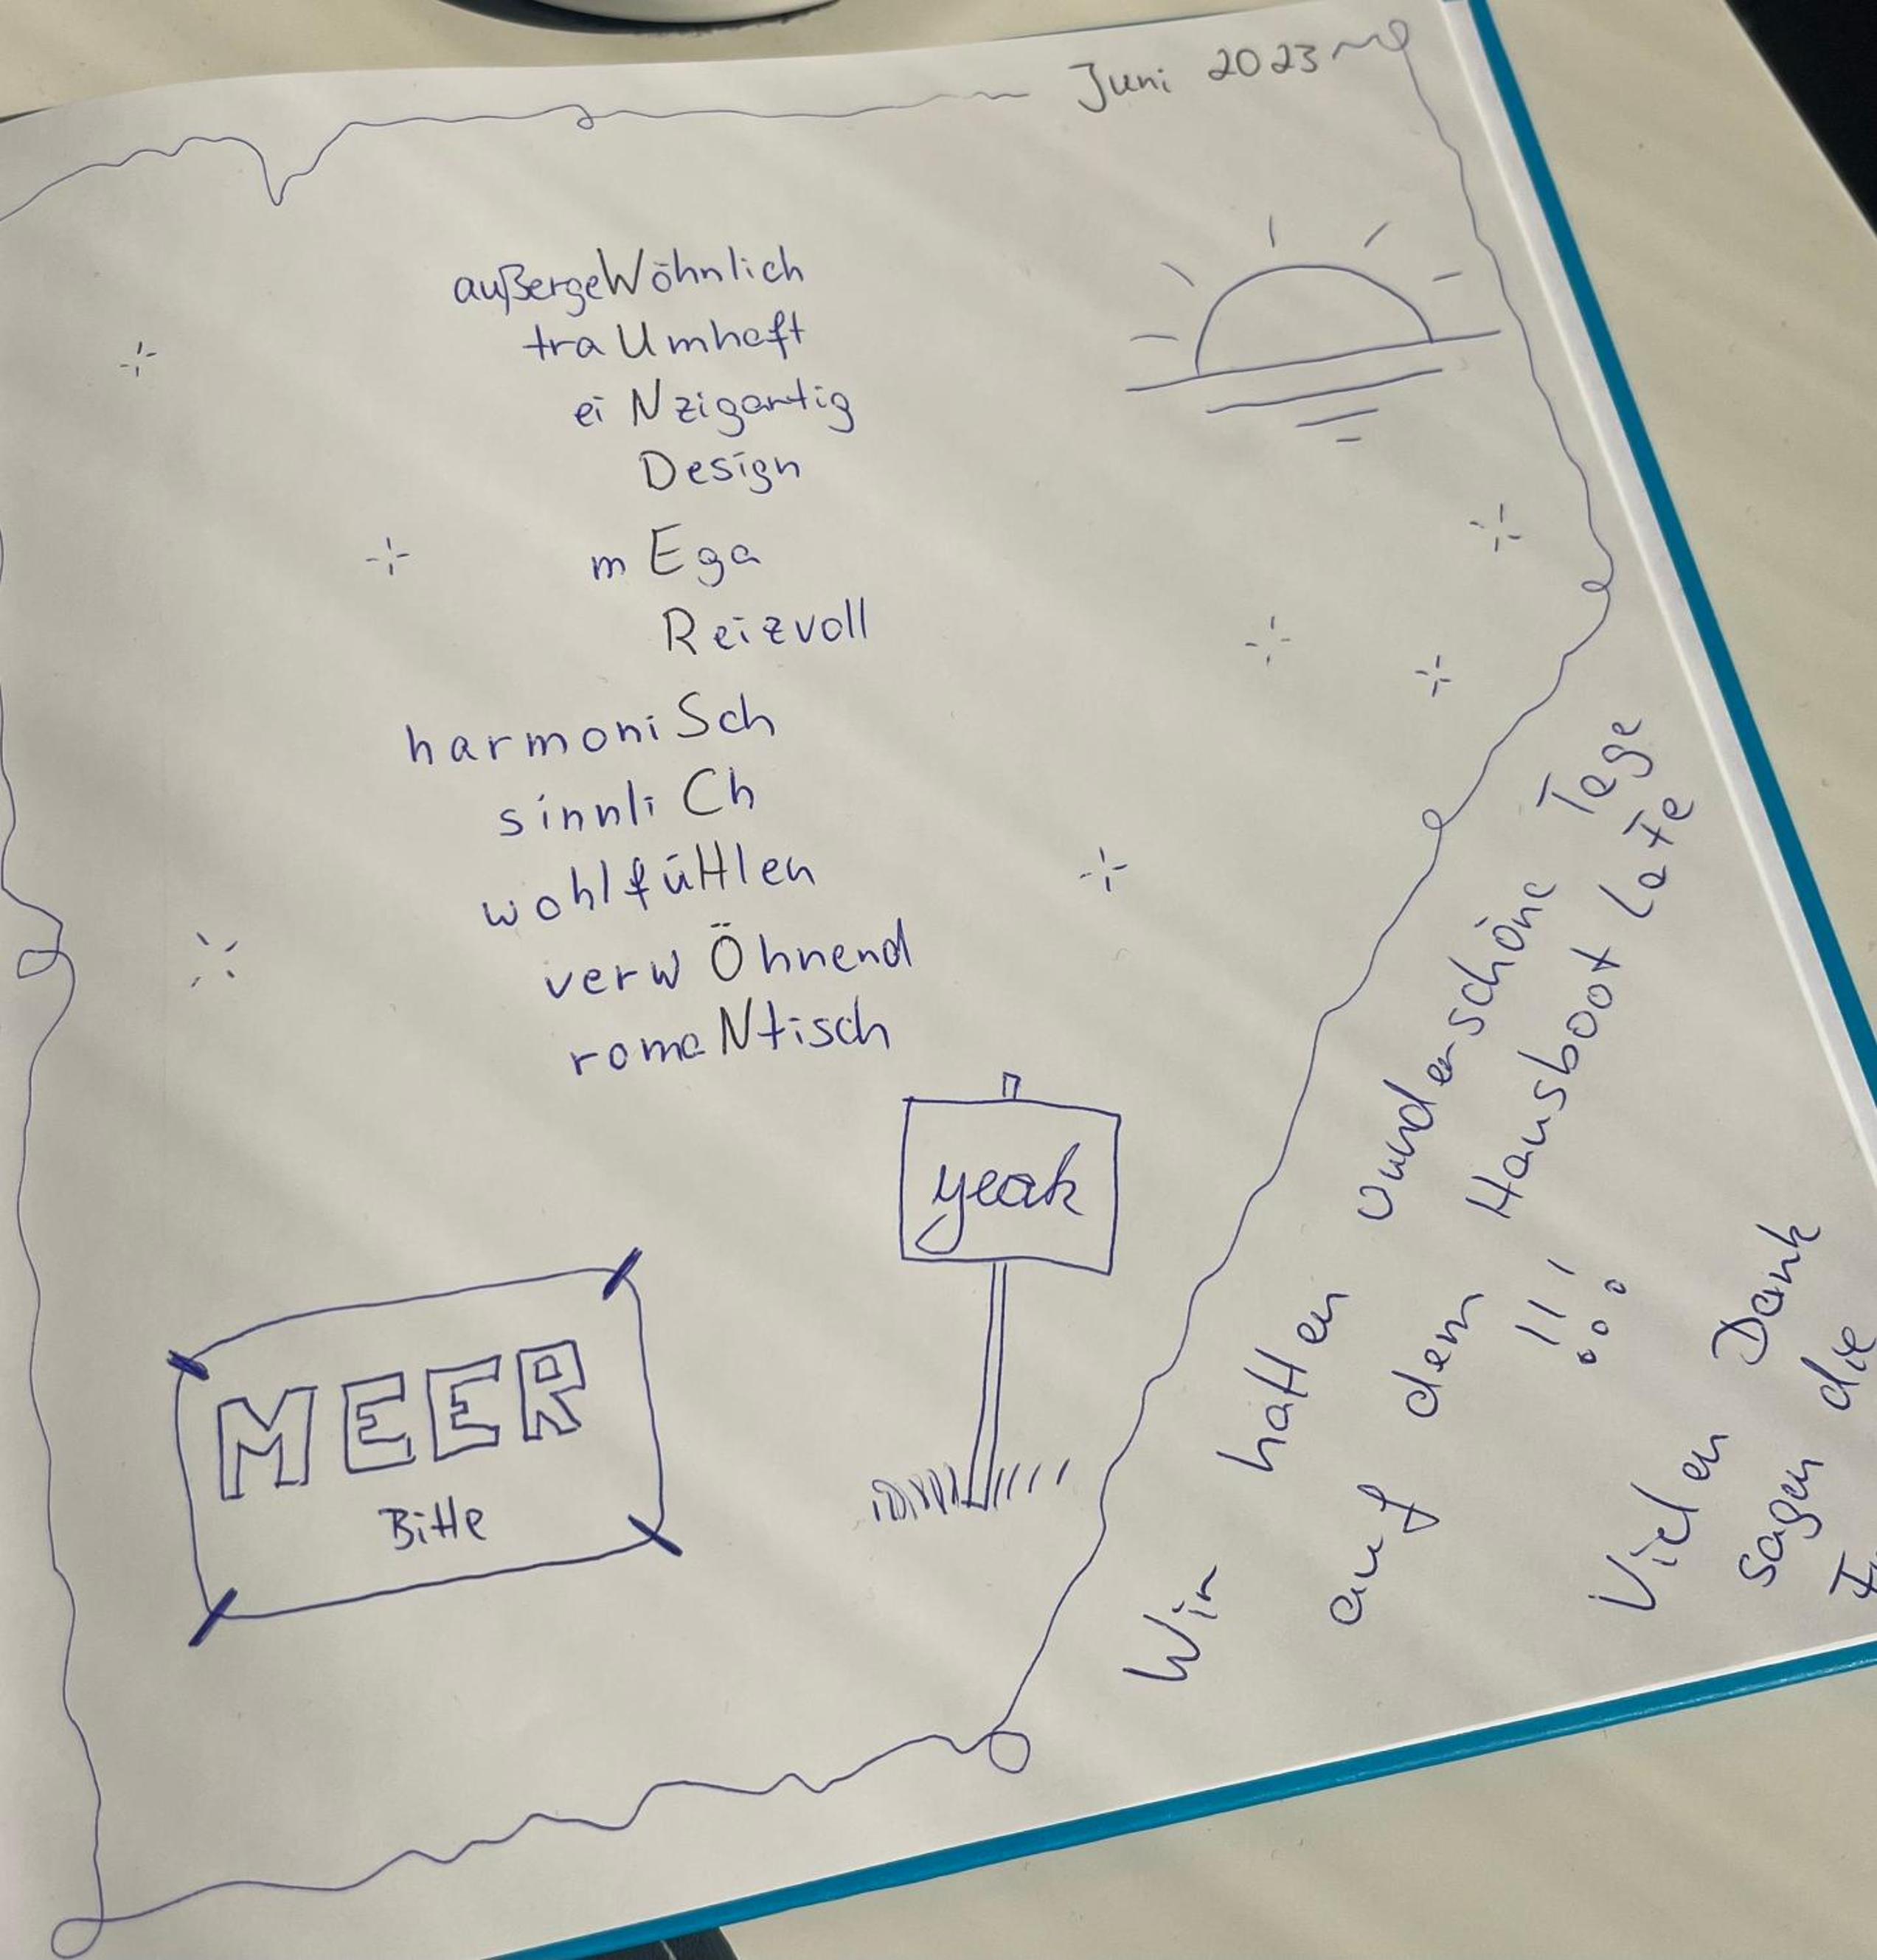 Juni 2023
außergeWöhnlich
traUmhaft
eiNzigartig
Design
mEga
Reizvoll
harmoniSch
sinnliCh
wohlfüHlen
verwÖhnend
romaNtisch
yeah
MEER
Bitte
Wir hatten wunderschöne Tage
auf dem Hausboot Late
!!!
Vielen Dank
sagen die